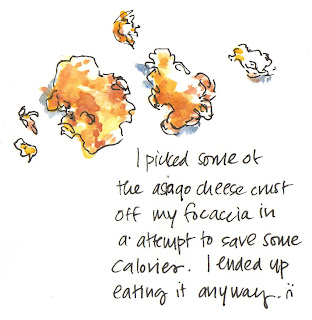 I picked some of
the asiago cheese crust
off my focaccia in
a attempt to save some
calories. I ended up
eating it anyway. :)